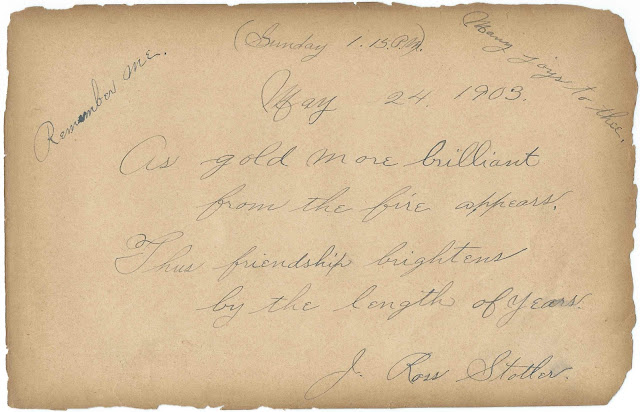 (Sunday 1.15 P.M.)
Remember Me.
Many joys to thee.
May 24. 1903.
As gold more brilliant
from the fire appears.
Thus friendship brightens
by the length of years.
J. Ross Stotler.